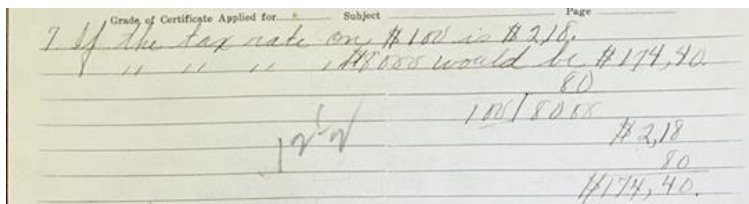 Grade of Certificate Applied for Subject Page
7. If the tax rate on $100 is $2,18.
" " " " " $8000 would be $174,40.
80
100/8000
$2,18
80
$174,40.